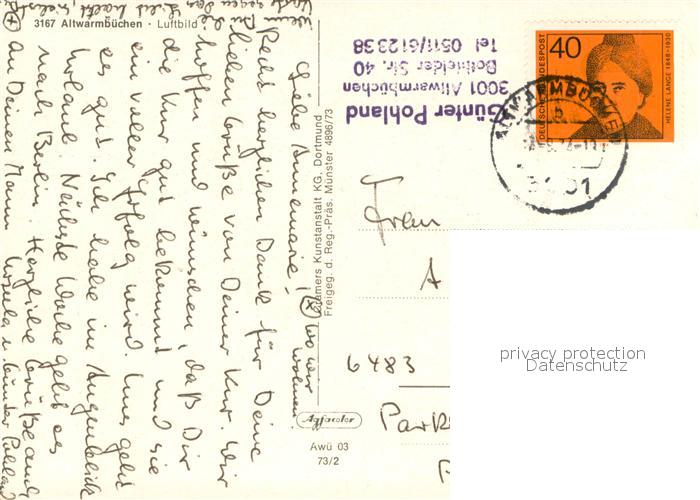 3167 Altwarmbüchen · Luftbild
Liebe Annemarie!
Recht herzlichen Dank für Deine
lieben Grüße von Deiner Kur. Wir
hoffen und wünschen, daß Dir
die Kur gut bekommt und sie
ein voller Erfolg wird. Uns geht
es gut. Ich habe im Augenblick
Urlaub. Nächste Woche geht es
nach Berlin. Herzliche Grüße auch
an Deinen Mann Ursula u. Günter Pohland
wo wir wohnen
Cramers Kunstanstalt KG, Dortmund
Freigeg. d. Reg.-Präs. Münster 4896/73
Günter Pohland
3001 Altwarmbüchen
Bothfelder Str. 40
Tel. 0511/612338
40
DEUTSCHE BUNDESPOST
HELENE LANGE 1848-1930
ALTWARMBÜCHEN
3001
Frau
A
6483
Park
Agfacolor
Awü 03
73/2
privacy protection
Datenschutz